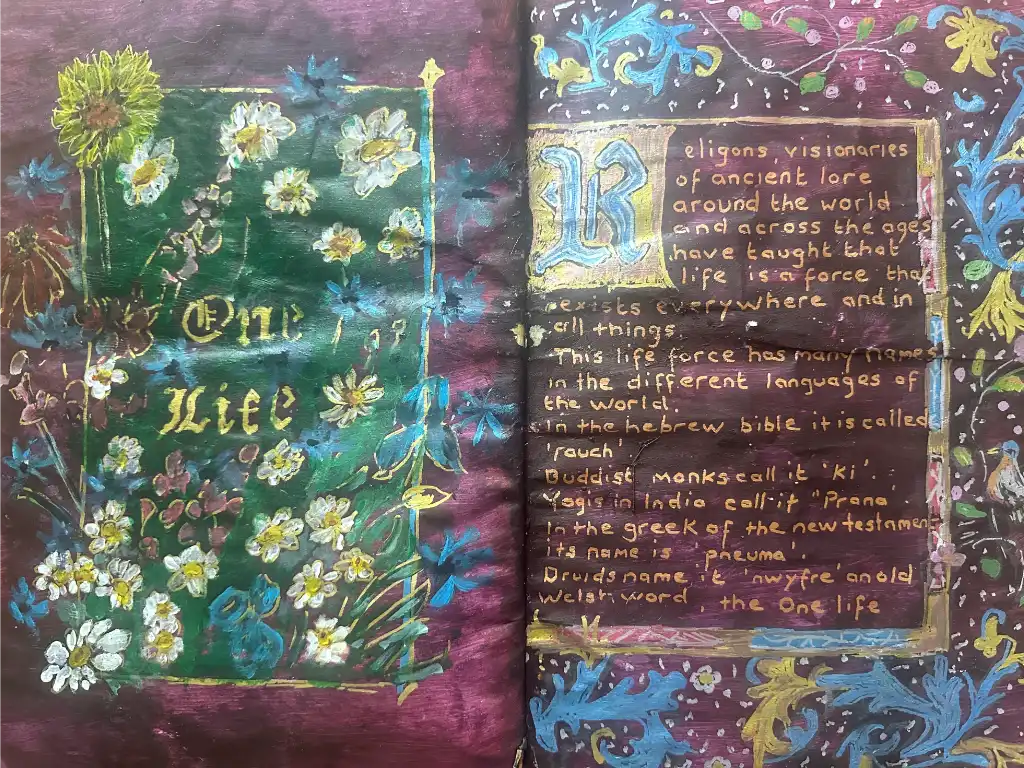 One
Life
Religons, visionaries
of ancient lore
around the world
and across the ages
have taught that
life is a force that
exists everywhere and in
all things.
This life force has many names
in the different languages of
the world.
In the hebrew bible it is called
'rauch'
Buddist monks call it 'Ki'.
Yogis in India call it "Prana'
In the greek of the new testament
its name is 'pneuma'.
Druids name it 'nwyfre' an old
Welsh word, the One life